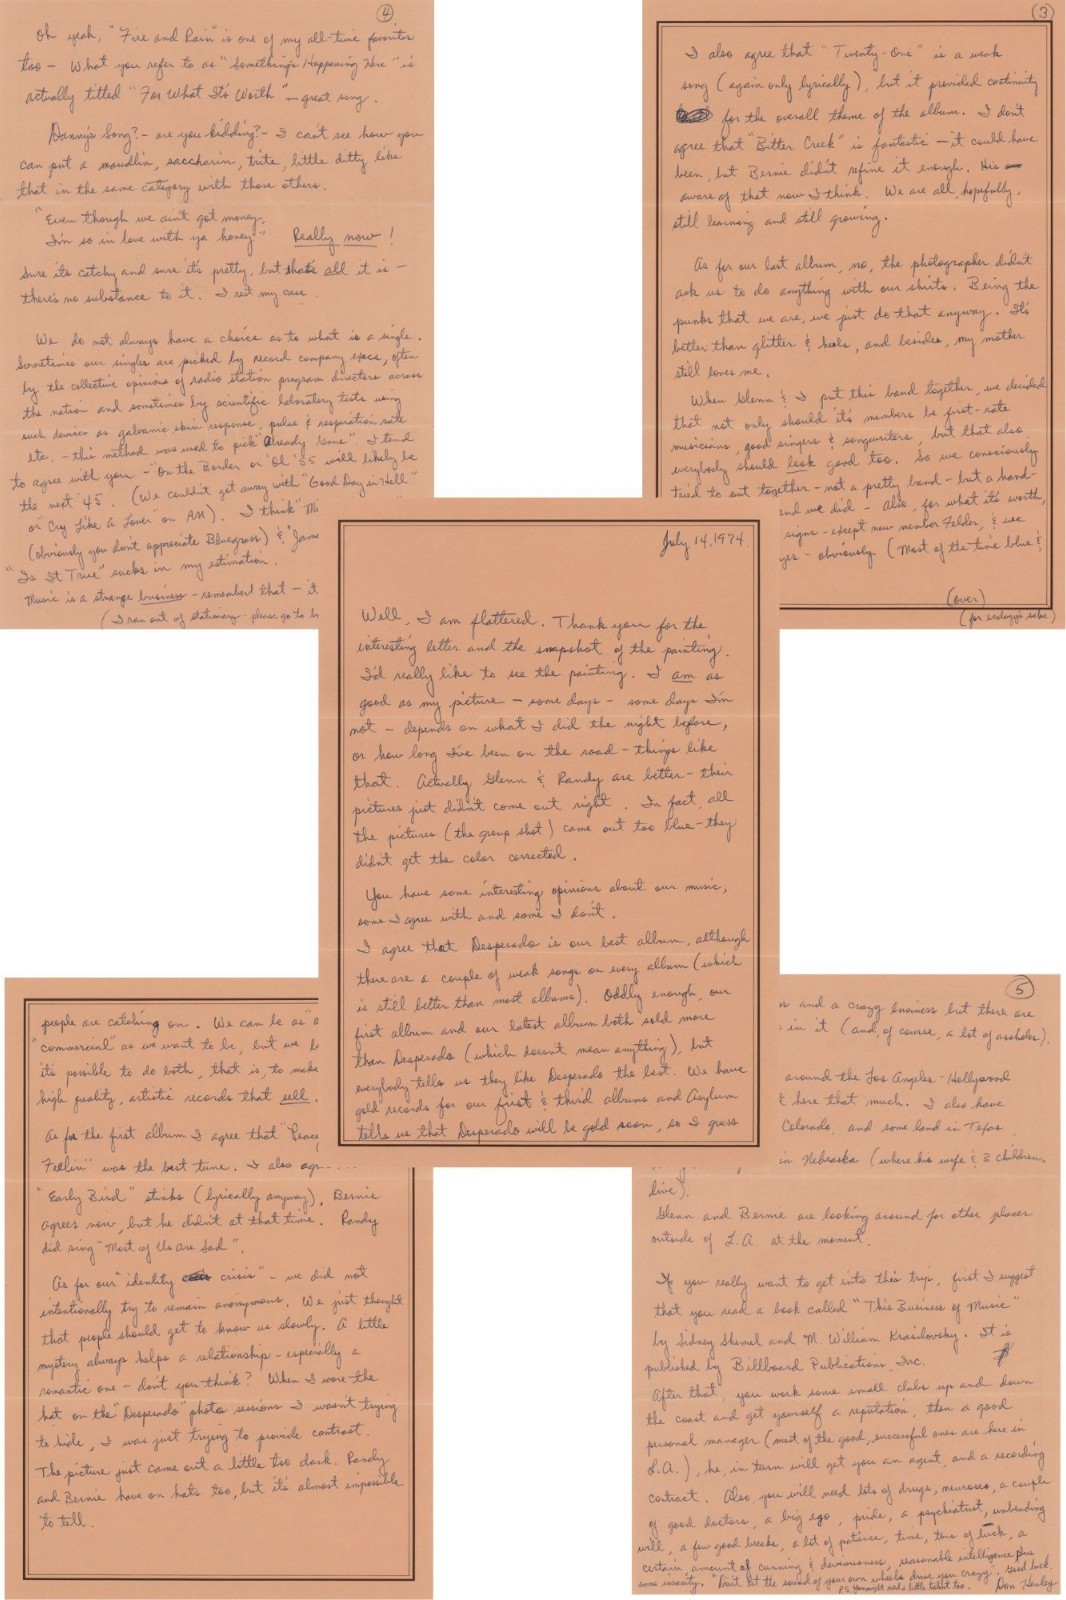 July 14, 1974.
Well, I am flattered. Thank you for the
interesting letter and the snapshot of the painting.
I'd really like to see the painting. I am as
good as my picture — some days — some days I'm
not — depends on what I did the night before,
or how long I've been on the road — things like
that. Actually Glenn & Randy are better — their
pictures just didn't come out right. In fact, all
the pictures (the group shot) came out too blue — they
didn't get the color corrected.
You have some interesting opinions about our music,
some I agree with and some I don't.
I agree that Desperado is our best album, although
there are a couple of weak songs on every album (which
is still better than most albums). Oddly enough, our
first album and our latest album both sold more
than Desperado (which doesn't mean anything), but
everybody tells us they like Desperado the best. We have
gold records for our first & third albums and Asylum
tells us that Desperado will be gold soon, so I guess
people are catching on. We can be as "a
"commercial" as we want to be, but we b
it's possible to do both, that is, to make
high quality, artistic records that sell.
As for the first album I agree that "Peace
Feelin" was the best tune. I also agr
"Early Bird" stinks (lyrically anyway). Bernie
agrees now, but he didn't at that time. Randy
did sing "Most of Us Are Sad".
As for our "identity crisis" — we did not
intentionally try to remain anonymous. We just thought
that people should get to know us slowly. A little
mystery always helps a relationship — especially a
romantic one — don't you think? When I wore the
hat on the "Desperado" photo sessions I wasn't trying
to hide, I was just trying to provide contrast.
The picture just came out a little too dark. Randy
and Bernie have on hats too, but it's almost impossible
to tell.
3
I also agree that "Twenty-One" is a weak
song (again only lyrically), but it provided continuity
for the overall theme of the album. I don't
agree that "Bitter Creek" is fantastic — it could have
been, but Bernie didn't refine it enough. He's
aware of that now I think. We are all, hopefully,
still learning and still growing.
As for our last album, no, the photographer didn't
ask us to do anything with our shirts. Being the
punks that we are, we just do that anyway. It's
better than glitter & heels, and besides, my mother
still loves me.
When Glenn & I put this band together, we decided
that not only should it's members be first-rate
musicians, good singers & songwriters, but that also
everybody should look good too. So we consciously
tried to put together — not a pretty band — but a hand-
and we did — Also, for what it's worth,
signs — except new member Felder, & we
yes — obviously (Most of the time blue &
(over)
(for ecology's sake)
4
Oh yeah, "Fire and Rain" is one of my all-time favorites
too — What you refer to as "Something's Happening Here" is
actually titled "For What It's Worth" — great song.
Danny's Song? — are you kidding? — I can't see how you
can put a maudlin, saccharin, trite, little ditty like
that in the same category with those others.
"Even though we ain't got money,
I'm so in love with ya honey" Really now!
Sure it's catchy and sure it's pretty, but that's all it is —
there's no substance to it. I rest my case.
We do not always have a choice as to what is a single.
Sometimes our singles are picked by record company execs, often
by the collective opinions of radio station program directors across
the nation and sometimes by scientific laboratory tests using
such devices as galvanic skin response, pulse & respiration rate
etc. — this method was used to pick "Already Gone". I tend
to agree with you — "On the Border or "Ol' 55 will likely be
the next '45. (We couldn't get away with "Good Day in Hell"
or Cry Like a Lover" on AM). I think "Mi
(obviously you don't appreciate Bluegrass) & "Jame
"Is It True" sucks in my estimation.
Music is a strange business — remember that — it
(I ran out of stationary — please go to
5
and a crazy business but there are
in it (and, of course, a lot of assholes).
around the Los Angeles - Hollywood
here that much. I also have
Colorado, and some land in Texas
in Nebraska (where his wife & 2 children
live).
Glenn and Bernie are looking around for other places
outside of L.A. at the moment.
If you really want to get into this trip, first I suggest
that you read a book called "This Business of Music"
by Sidney Shemel and M. William Krasilovsky. It is
published by Billboard Publications, Inc.
After that, you work some small clubs up and down
the coast and get yourself a reputation, then a good
personal manager (most of the good, successful ones are here in
L.A.), he, in turn will get you an agent, and a recording
contract. Also, you will need lots of drugs, neuroses, a couple
of good doctors, a big ego, pride, a psychiatrist, unbending
will, a few good breaks, a lot of patience, time, tons of luck, a
certain amount of cunning & deviousness, reasonable intelligence plus
some insanity. "Don't let the sound of your own wheels drive you crazy". Good luck.
P.S. You might need a little talent too. Don Henley